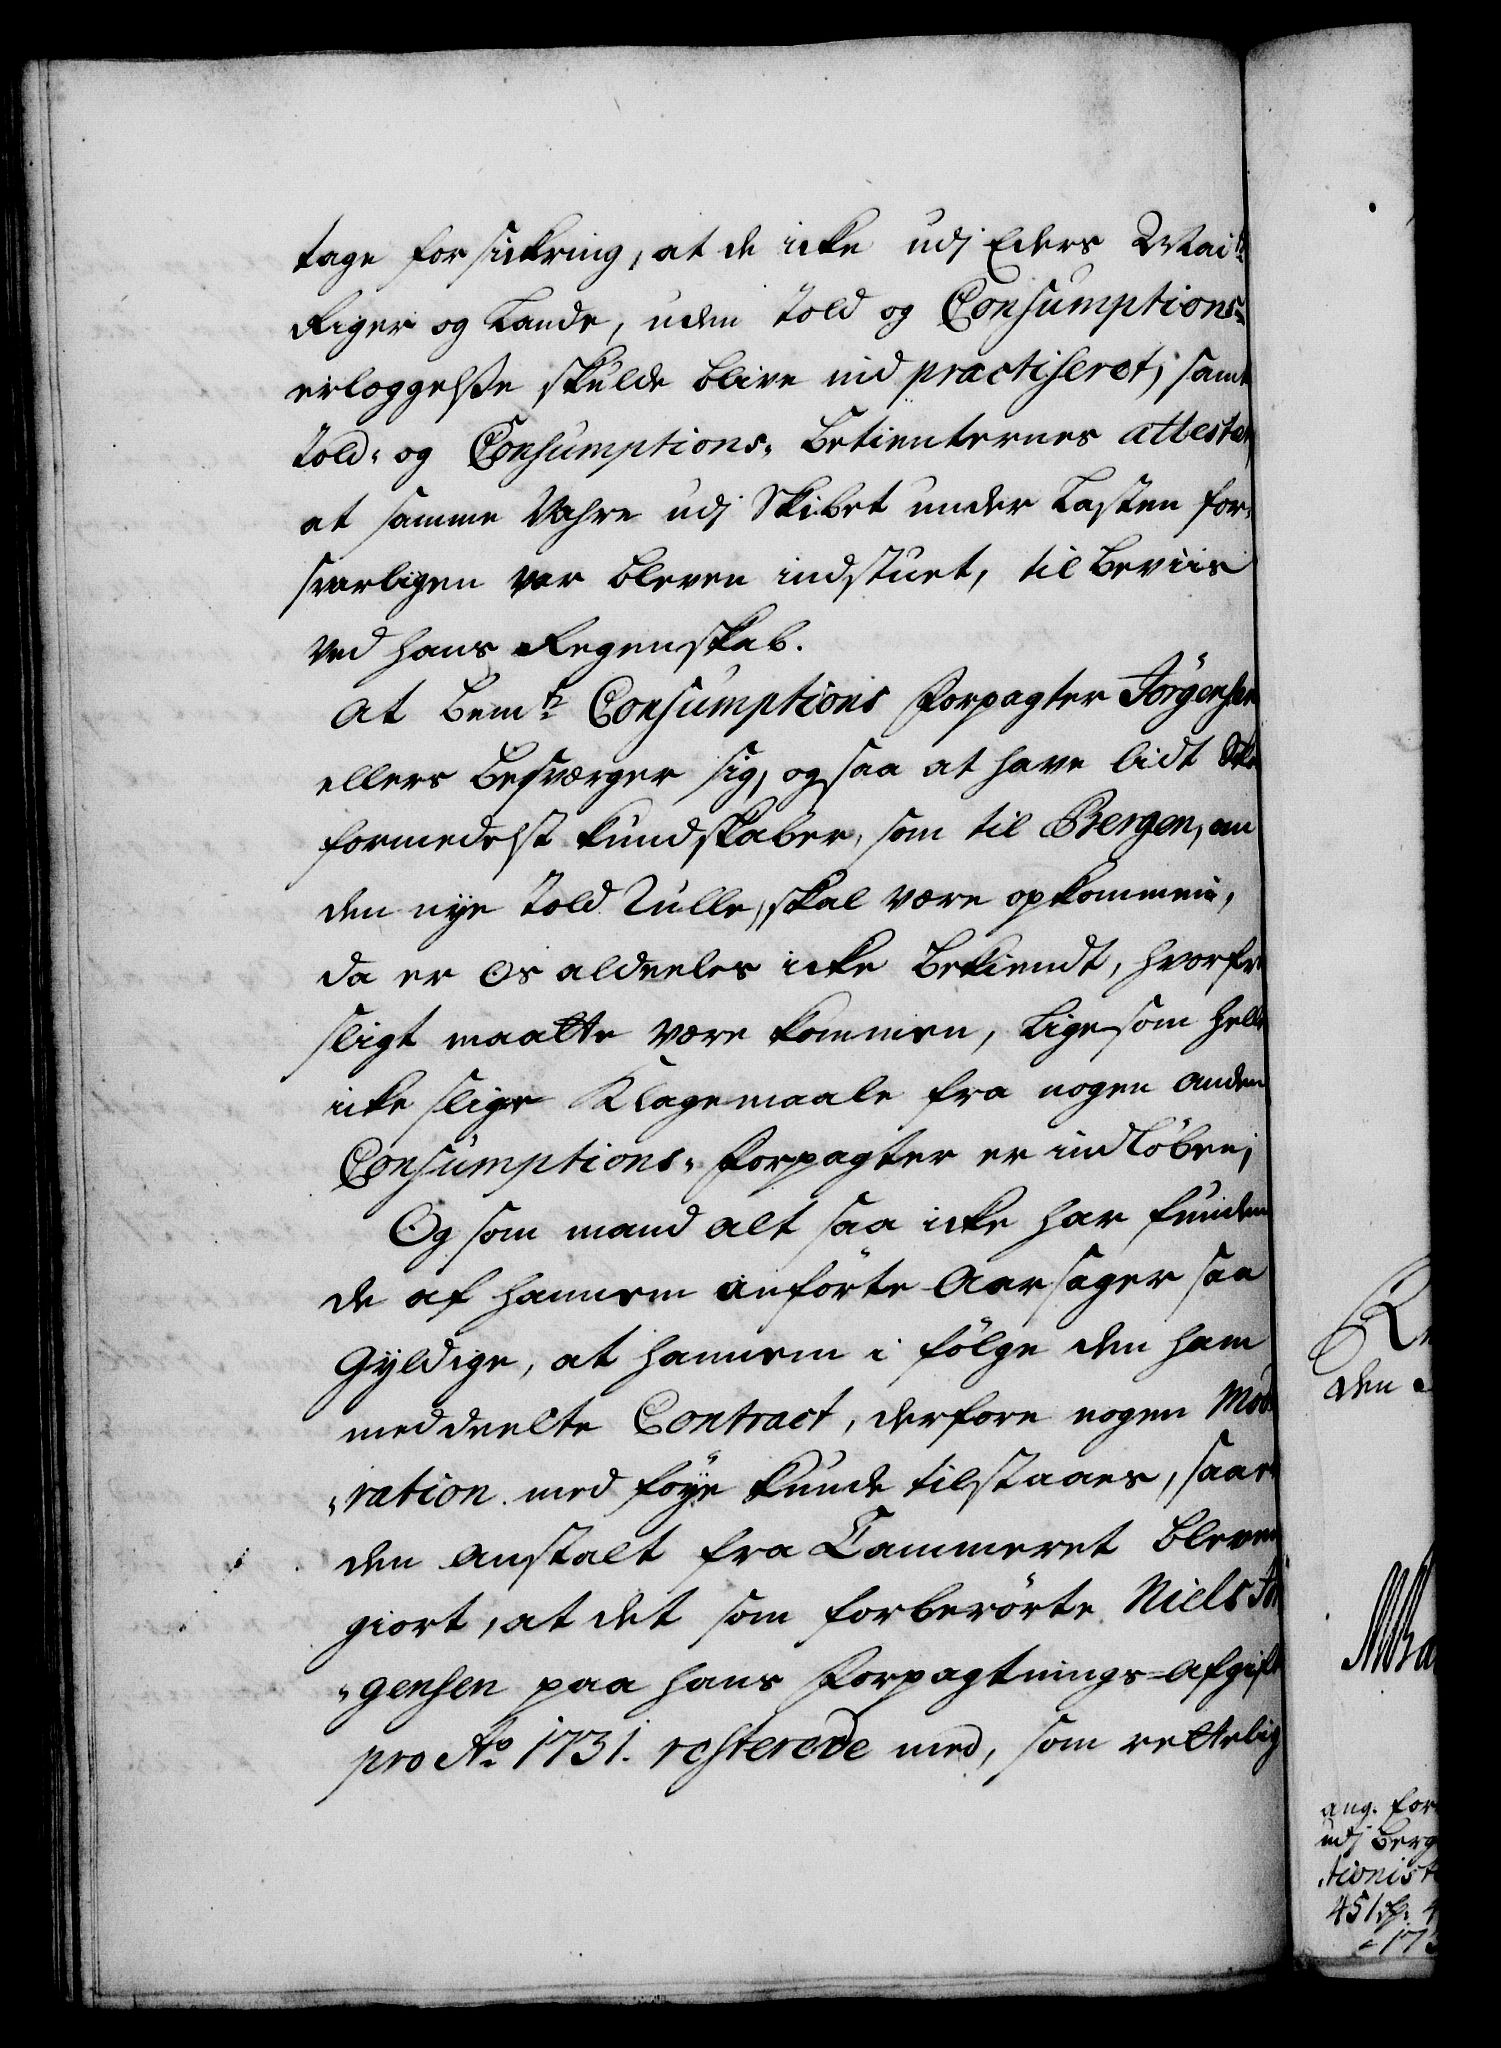 tage forsickring, at de icke udj Eders May:ts
Riger og Lande, uden Told og Consumptions-
erleggelsse skulde blive ind practiseret; samt
Told- og Consumptions-Betienternes attester,
at samme Vahre udj Skibet under Lasten for-
svarligen var bleven indstuet, til Beviis
ved hans Regenskab.
At bem:te Consumptions Forpagter Jörgensen
ellers besværger sig, ogsaa at have lidt
formedelst kundskaber, som til Bergen, om
den nye Told Rulle, skal være opkommen,
da er os aldeeles icke bekiendt, hvorfra
sligt maatte være kommen, ligesom heller
icke slige Klagemaale fra nogen anden
Consumptions-Forpagter er indløben;
Og som mand alt saa icke har funden
de af hannem anførte Aarsager saa
Gyldige, at hannem i følge den ham
meddeelte Contract, derfore nogen Mode-
-ration med føye kunde tilstaaes, saa er
den anstalt fra Cammeret bleven
giort, at det som forberørte Niels Jör-
-gensen paa hans Forpagtnings-Afgift
pro Ao 1731. resterede med, som rettelig
den
ang. for
udj Berg
-tionist
451 rd: 4
173